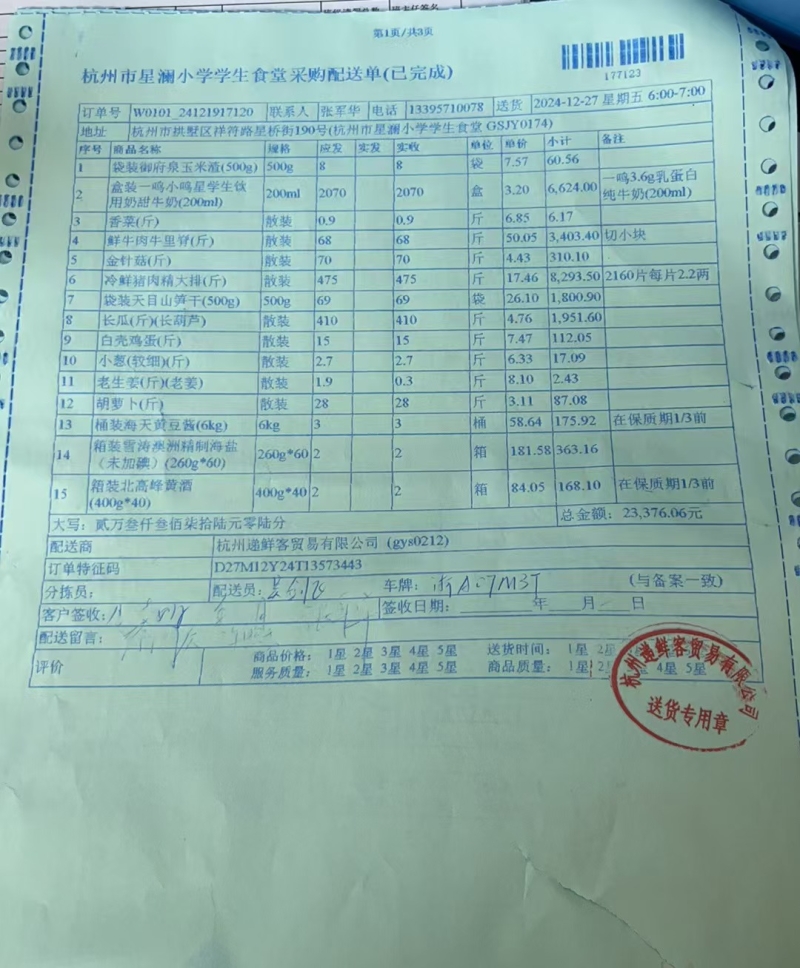 第1页/共3页
177123
杭州市星澜小学学生食堂采购配送单(已完成)
订单号 W0101_24121917120 联系人 张军华 电话 13395710078 送货 2024-12-27 星期五 6:00-7:00
地址 杭州市拱墅区祥符路星桥街190号(杭州市星澜小学学生食堂 GSJY0174)
序号 商品名称 规格 应发 实发 实收 单位 单价 小计 备注
1 袋装御府泉玉米渣(500g) 500g 8 8 袋 7.57 60.56
2 盒装一鸣小鸣星学生饮用奶甜牛奶(200ml) 200ml 2070 2070 盒 3.20 6,624.00 一鸣3.6g乳蛋白纯牛奶(200ml)
3 香菜(斤) 散装 0.9 0.9 斤 6.85 6.17
4 鲜牛肉牛里脊(斤) 散装 68 68 斤 50.05 3,403.40 切小块
5 金针菇(斤) 散装 70 70 斤 4.43 310.10
6 冷鲜猪肉精大排(斤) 散装 475 475 斤 17.46 8,293.50 2160片每片2.2两
7 袋装天目山笋干(500g) 500g 69 69 袋 26.10 1,800.90
8 长瓜(斤)(长葫芦) 散装 410 410 斤 4.76 1,951.60
9 白壳鸡蛋(斤) 散装 15 15 斤 7.47 112.05
10 小葱(较细)(斤) 散装 2.7 2.7 斤 6.33 17.09
11 老生姜(斤)(老姜) 散装 1.9 0.3 斤 8.10 2.43
12 胡萝卜(斤) 散装 28 28 斤 3.11 87.08
13 桶装海天黄豆酱(6kg) 6kg 3 3 桶 58.64 175.92 在保质期1/3前
14 箱装雪涛澳洲精制海盐（未加碘）(260g*60) 260g*60 2 2 箱 181.58 363.16
15 箱装北高峰黄酒(400g*40) 400g*40 2 2 箱 84.05 168.10 在保质期1/3前
大写：贰万叁仟叁佰柒拾陆元零陆分 总金额：23,376.06元
配送商 杭州递鲜客贸易有限公司 (gys0212)
订单特征码 D27M12Y24T13573443
分拣员： 配送员： 车牌： (与备案一致)
客户签收： 签收日期：____年__月__日
配送留言：
评价 商品价格： 1星 2星 3星 4星 5星 送货时间： 1星 2星
服务质量： 1星 2星 3星 4星 5星 商品质量： 1星 2星 4星 5星
杭州递鲜客贸易有限公司
送货专用章